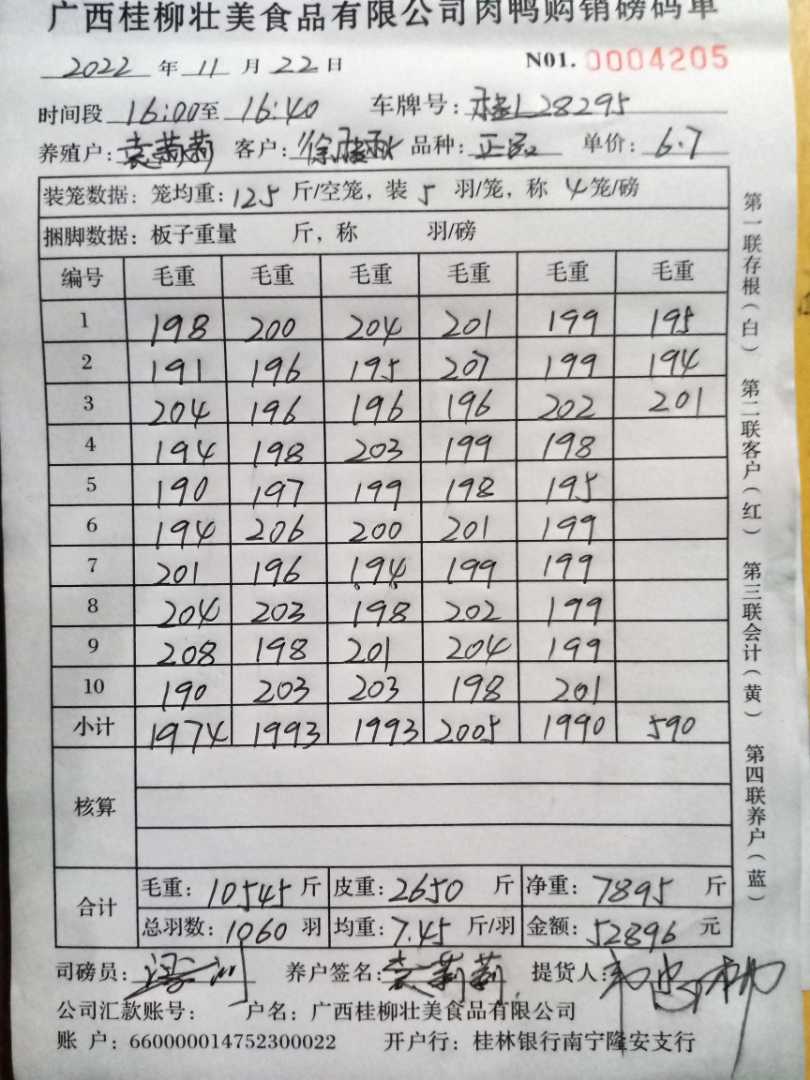 广西桂柳壮美食品有限公司肉鸭购销磅码单
2022 年 11 月 22 日 N01. 0004205
时间段 16:00 至 16:40 车牌号: 桂L28295
养殖户: 袁莉莉 客户: 徐桂秋 品种: 正品 单价: 6.7
装笼数据: 笼均重: 12.5 斤/空笼, 装 5 羽/笼, 称 4 笼/磅
捆脚数据: 板子重量 斤, 称 羽/磅
编号 毛重 毛重 毛重 毛重 毛重 毛重
1 198 200 204 201 199 195
2 191 196 195 207 199 194
3 204 196 196 196 202 201
4 194 198 203 199 198
5 190 197 199 198 195
6 194 206 200 201 199
7 201 196 194 199 199
8 204 203 198 202 199
9 208 198 201 204 199
10 190 203 203 198 201
小计 1974 1993 1993 2005 1990 590
核算
合计 毛重: 10545 斤 皮重: 2650 斤 净重: 7895 斤
总羽数: 1060 羽 均重: 7.45 斤/羽 金额: 52896 元
司磅员: 养户签名: 袁莉莉 提货人:
公司汇款账号: 户名: 广西桂柳壮美食品有限公司
账 户: 660000014752300022 开户行: 桂林银行南宁隆安支行
第一联存根(白) 第二联客户(红) 第三联会计(黄) 第四联养户(蓝)